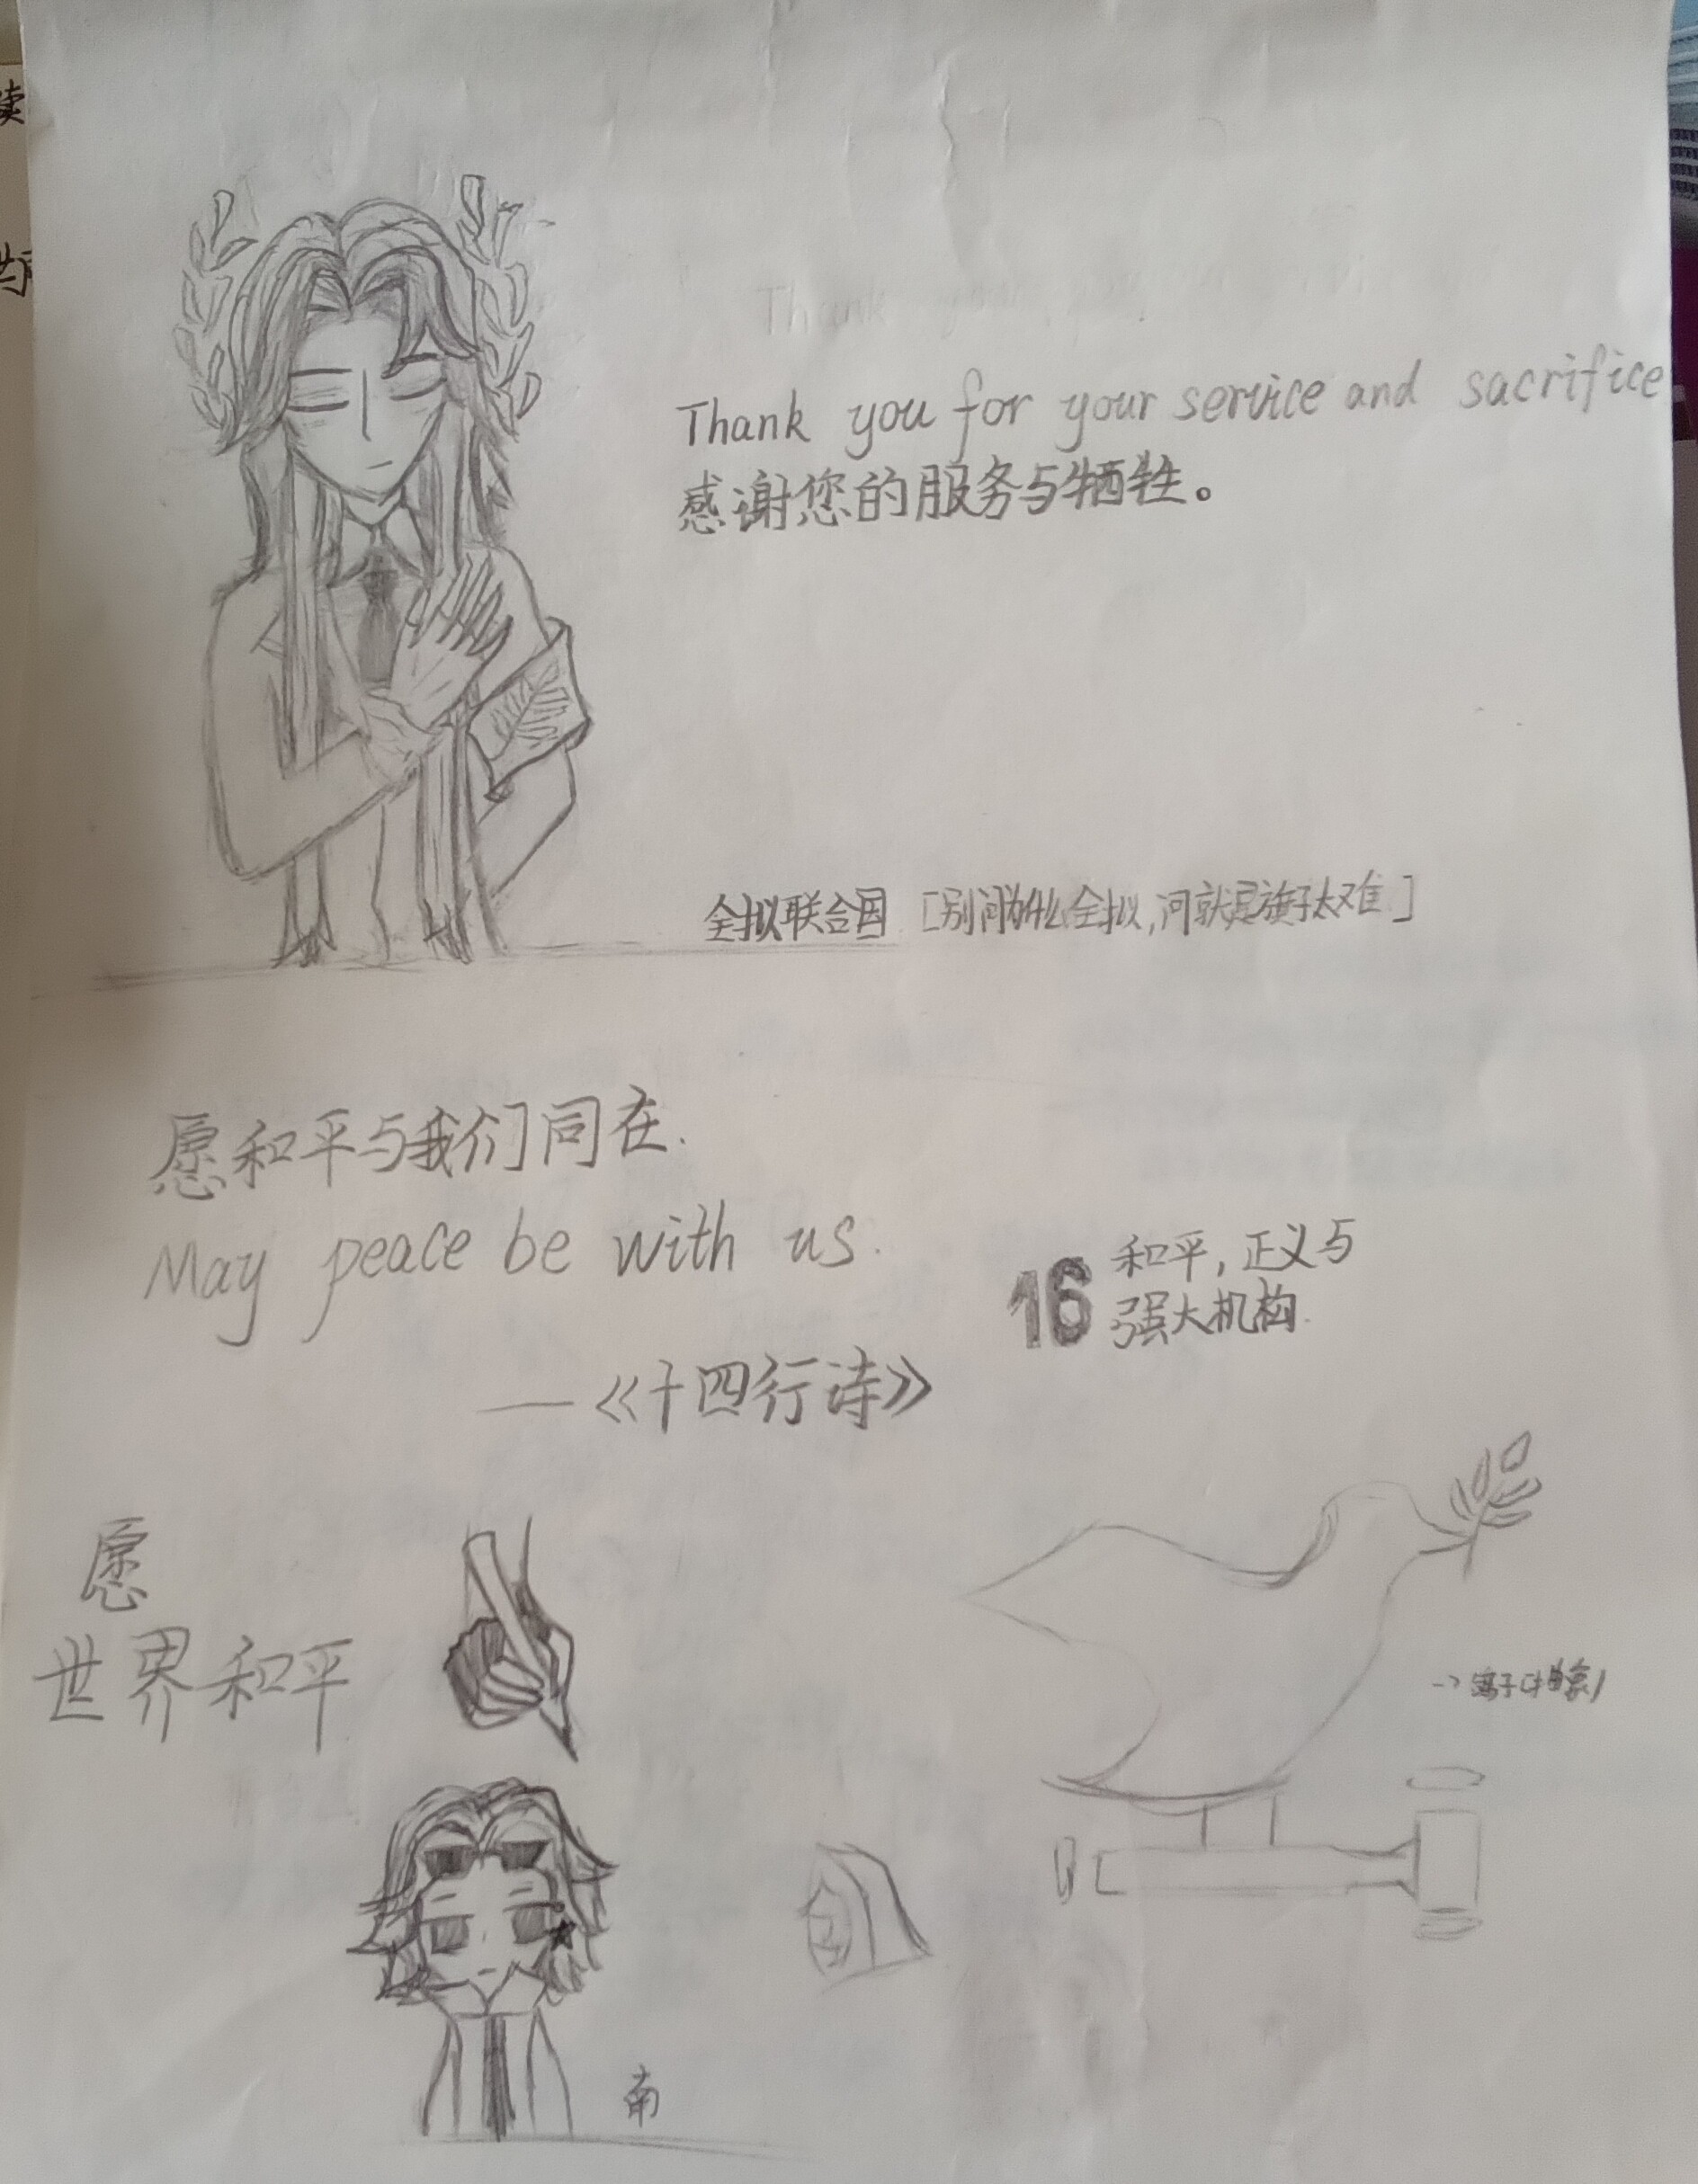 Thank you for your service and sacrifice
感谢您的服务与牺牲。
全拟联合国 [别问为什么全拟,问就是旗子太难]
愿和平与我们同在.
May peace be with us.
——《十四行诗》
16 和平,正义与
强大机构.
愿
世界和平
→鸽子(抽象)
南